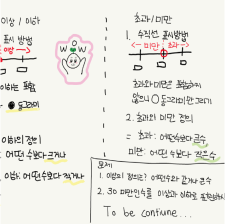 이상 / 이하
표시 방법
이하는 포함
● 동그라미
이하의 정의
: 어떤 수보다 크거나
이하: 어떤 수보다 작거나
WOW
초과 / 미만
1. 수직선 표시방법
미만 초과
초과와 미만은 포함하지
않으니 ○ 동그라미만 그리기
2. 초과와 미만 정의
초과: 어떤수보다 큰수
미만: 어떤 수보다 작은수
문제
1. 이상의 정의는? 어떤수와 같거나 큰수
2. 30 미만인수를 이상과 이하로
To be continue...